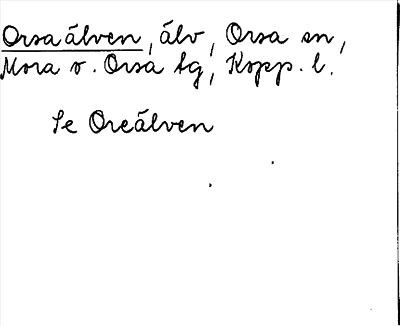 Orsaälven, älv, Orsa sn,
Mora o. Orsa tg, Kopp. l.
Se Oreälven